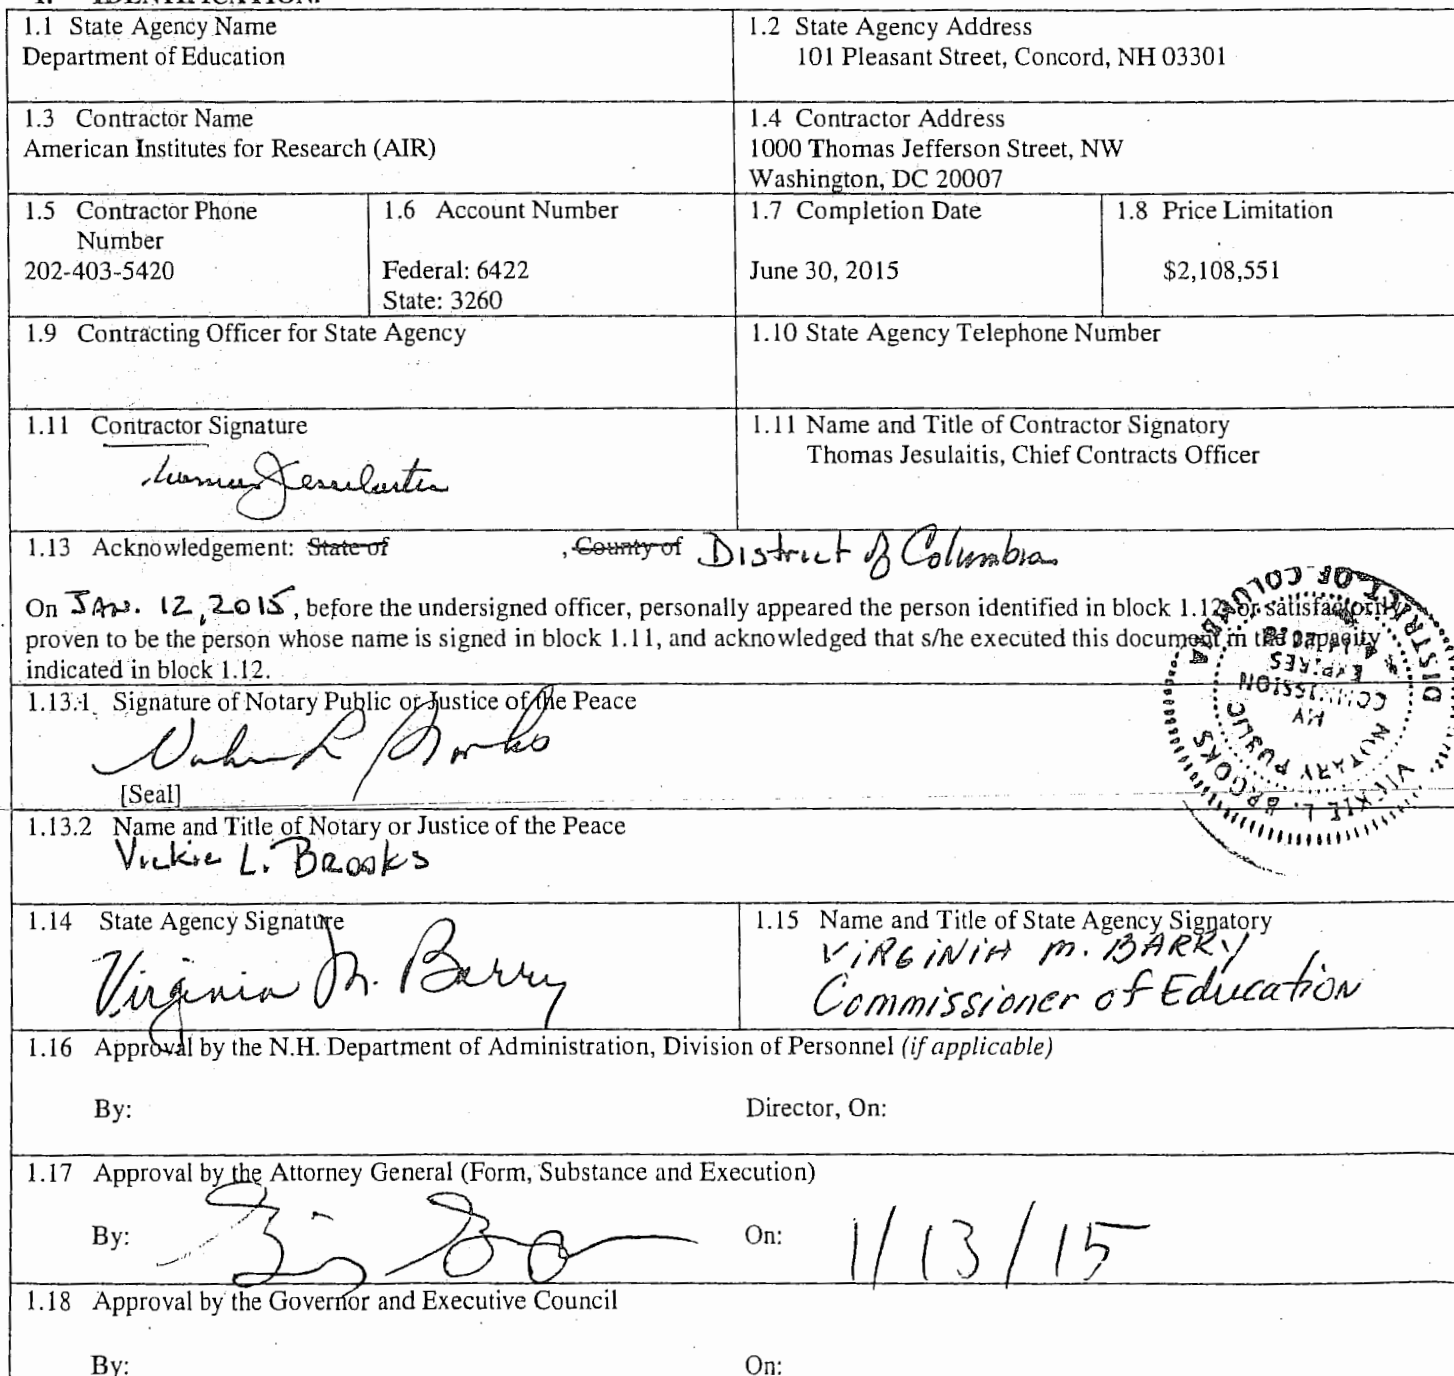 1. IDENTIFICATION.
1.1 State Agency Name
Department of Education
1.2 State Agency Address
101 Pleasant Street, Concord, NH 03301
1.3 Contractor Name
American Institutes for Research (AIR)
1.4 Contractor Address
1000 Thomas Jefferson Street, NW
Washington, DC 20007
1.5 Contractor Phone
Number
202-403-5420
1.6 Account Number
Federal: 6422
State: 3260
1.7 Completion Date
June 30, 2015
1.8 Price Limitation
$2,108,551
1.9 Contracting Officer for State Agency
1.10 State Agency Telephone Number
1.11 Contractor Signature
Thomas Jesulaitis
1.11 Name and Title of Contractor Signatory
Thomas Jesulaitis, Chief Contracts Officer
1.13 Acknowledgement: State of , County of District of Columbia
On JAN. 12, 2015, before the undersigned officer, personally appeared the person identified in block 1.12, or satisfactorily
proven to be the person whose name is signed in block 1.11, and acknowledged that s/he executed this document in the capacity
indicated in block 1.12.
DISTRICT OF COLUMBIA
MY
COMMISSION
EXPIRES
NOTARY PUBLIC
VICKIE L. BROOKS
1.13.1 Signature of Notary Public or Justice of the Peace
Vickie L Brooks
[Seal]
1.13.2 Name and Title of Notary or Justice of the Peace
Vickie L. Brooks
1.14 State Agency Signature
Virginia M. Barry
1.15 Name and Title of State Agency Signatory
VIRGINIA M. BARRY
Commissioner of Education
1.16 Approval by the N.H. Department of Administration, Division of Personnel (if applicable)
By:
Director, On:
1.17 Approval by the Attorney General (Form, Substance and Execution)
By:
On: 1/13/15
1.18 Approval by the Governor and Executive Council
By:
On: